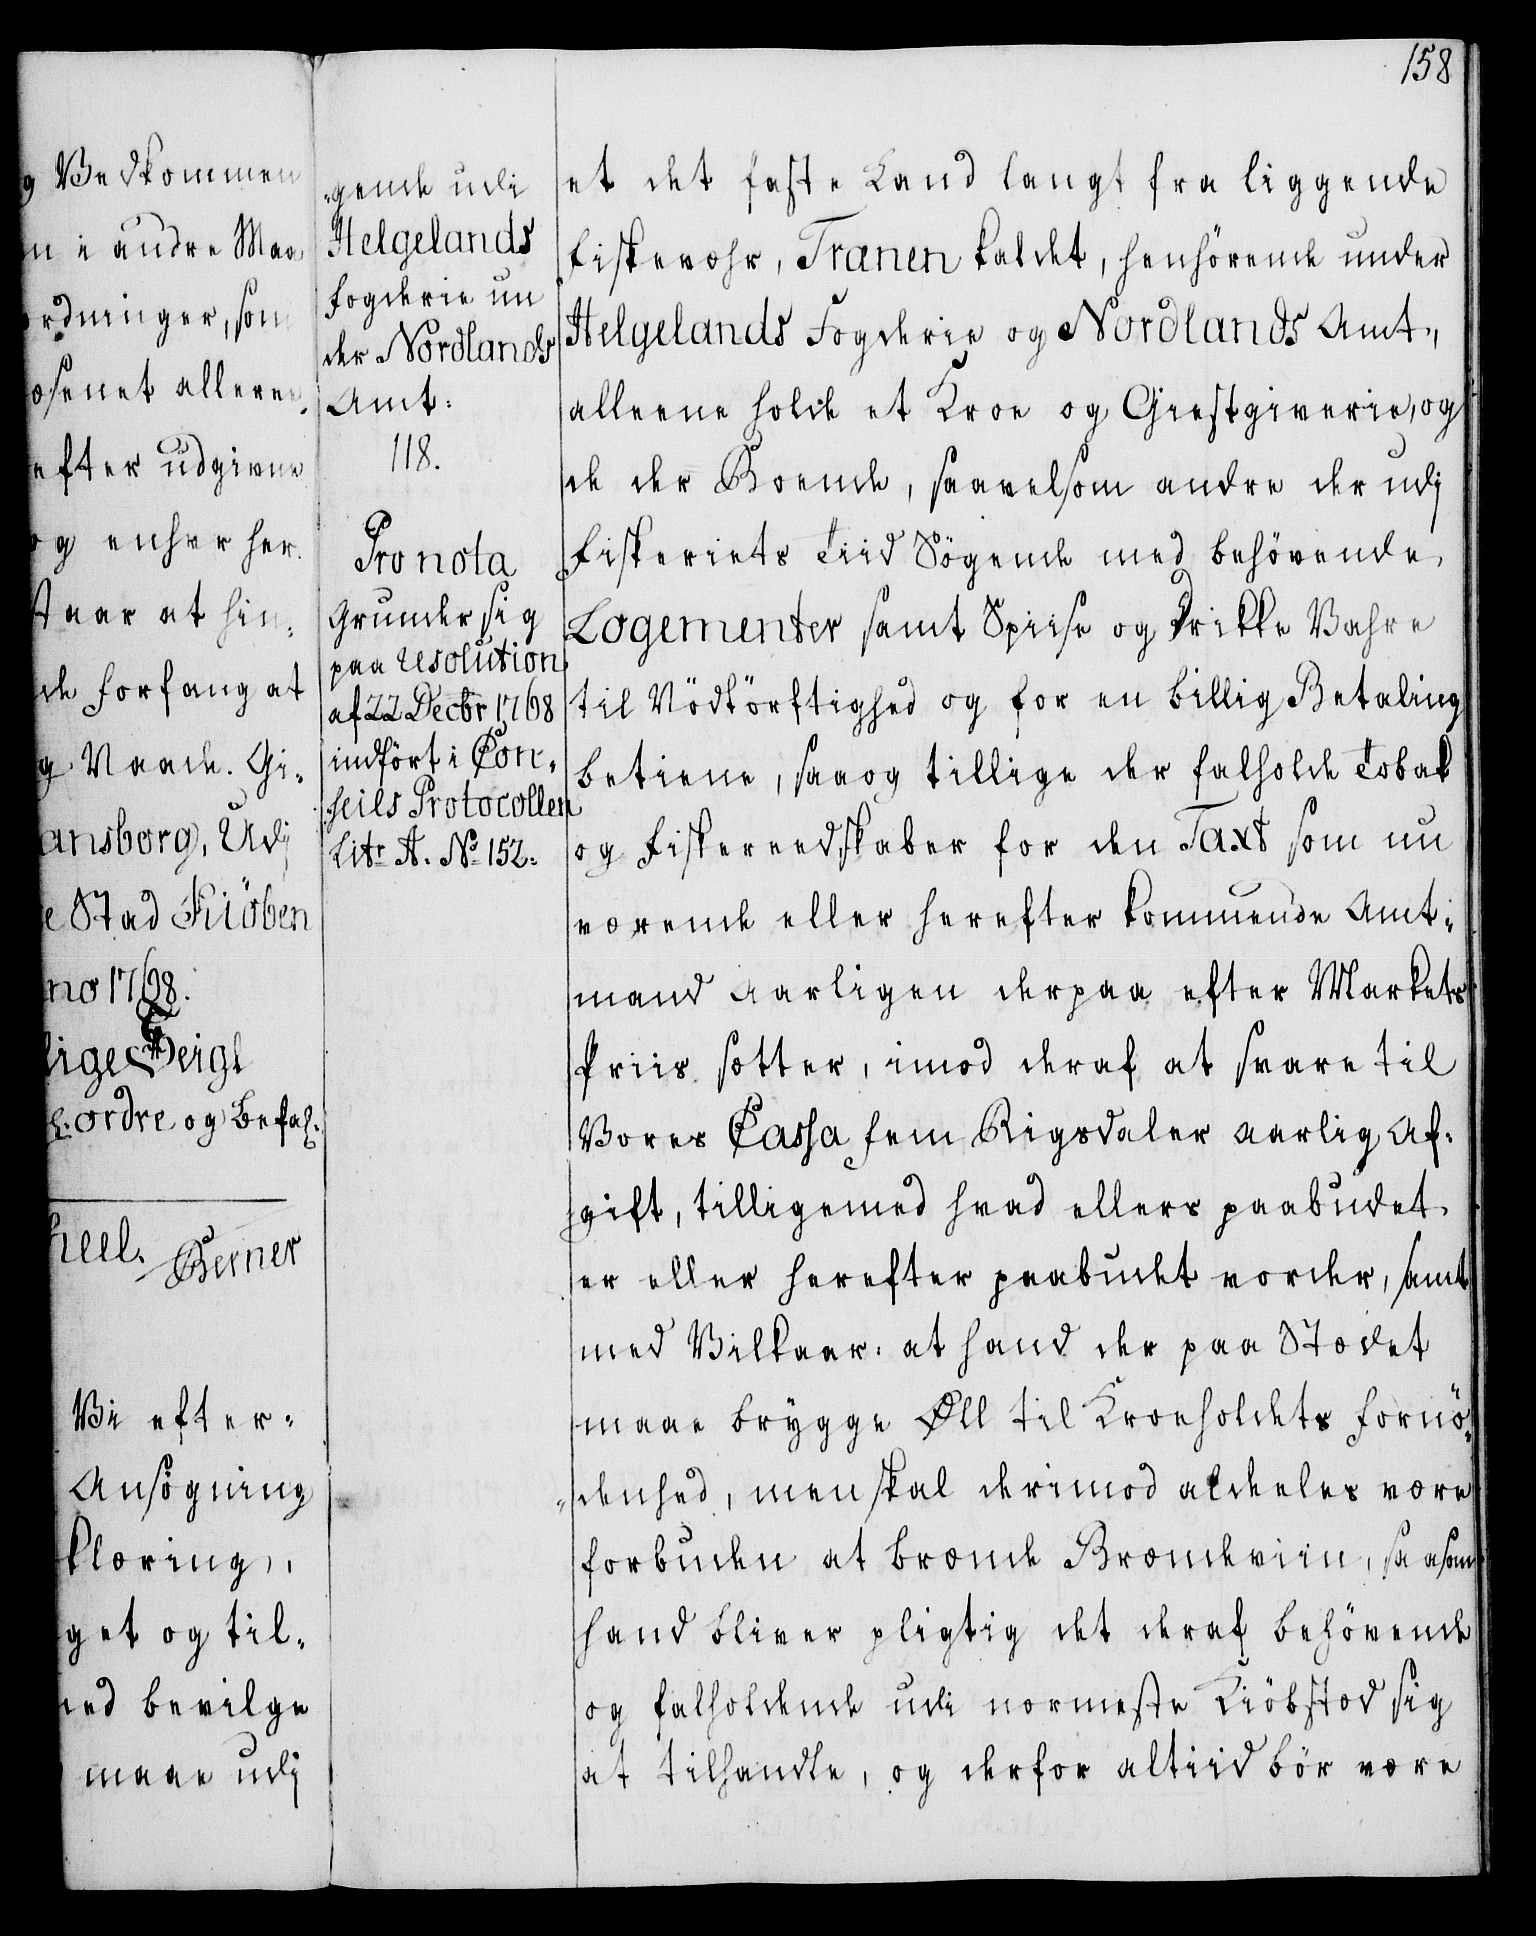 158
g Vedkommen
n i andre Maa
ordninger, som
osenet alleree¬
efter udgivne
og enhver her¬
staar at hin¬
de forfang at
g Naade. Gi¬
ansborg, Udj
e Stad Kiöben
no 1768.
lige Seigl
l: ordre og Befal:
heel. Berner
Vi efter¬
Ansögning
klæring,
get og til¬
ned bevilge
maae udj
¬gende udi
Helgelands
fogderie un
der Nordlands
Amt:
118.
Pro nota
Grunder sig
paa resolution
af 22 Decbr 1768
indfört i Con¬
seils Protocollen
Litr A. No 152:
et det faste Land langt fra liggende
Fiskevæhr, Trænen kaldet, henhörende under
Helgelands Fogderie og Nordlands Amt,
alleene holde et Kroe og Giestgiverie, og
de der Boende, saavelsom andre der udj
Fiskeriets Tiid Sögende med behövende
Logementer samt Spiise og Drikke Vahre
til Nödtörftighed og for en billig Betaling
betiene, saaog tillige der falholde Tobak
og Fiskereedskaber for den Taxt som nu
værende eller herefter kommende Amt¬
mand Aarligen derpaa efter Markets
Priis sætter, imod deraf at svare til
Vores Cassa fem Rigsdaler aarlig Af¬
gift, tilligemed hvad ellers paabudet
er eller herefter paabudet vorder, samt
med Vilkaar: at hand der paa Stædet
maae brygge Øll til Kroeholdets fornö¬
denhed, men skal derimod aldeeles være
forbuden at brænde Brændeviin, saasom
hand bliver pligtig det deraf behövende
og falholdende udi nærmeste Kiöbstæd sig
at tilhandle, og derfor altiid bör være